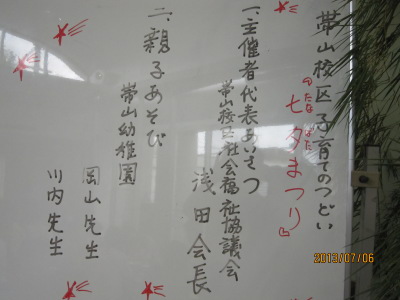 帯山校区子育てのつどい
『七夕まつり』
たな ばた
一、主催者代表あいさつ
帯山校区社会福祉協議会
浅田会長
二、親子あそび
帯山幼稚園
岡山先生
川内先生
2013/07/06